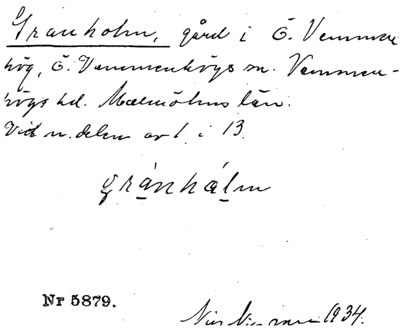 Granholm, gård i Ö. Vemmen
hög, Ö. Vemmenhögs sn. Vemmen-
högs hd. Malmöhus län.
Vid n. delen av 1. i 13.
gránhálm
Nr 5879.
1934.